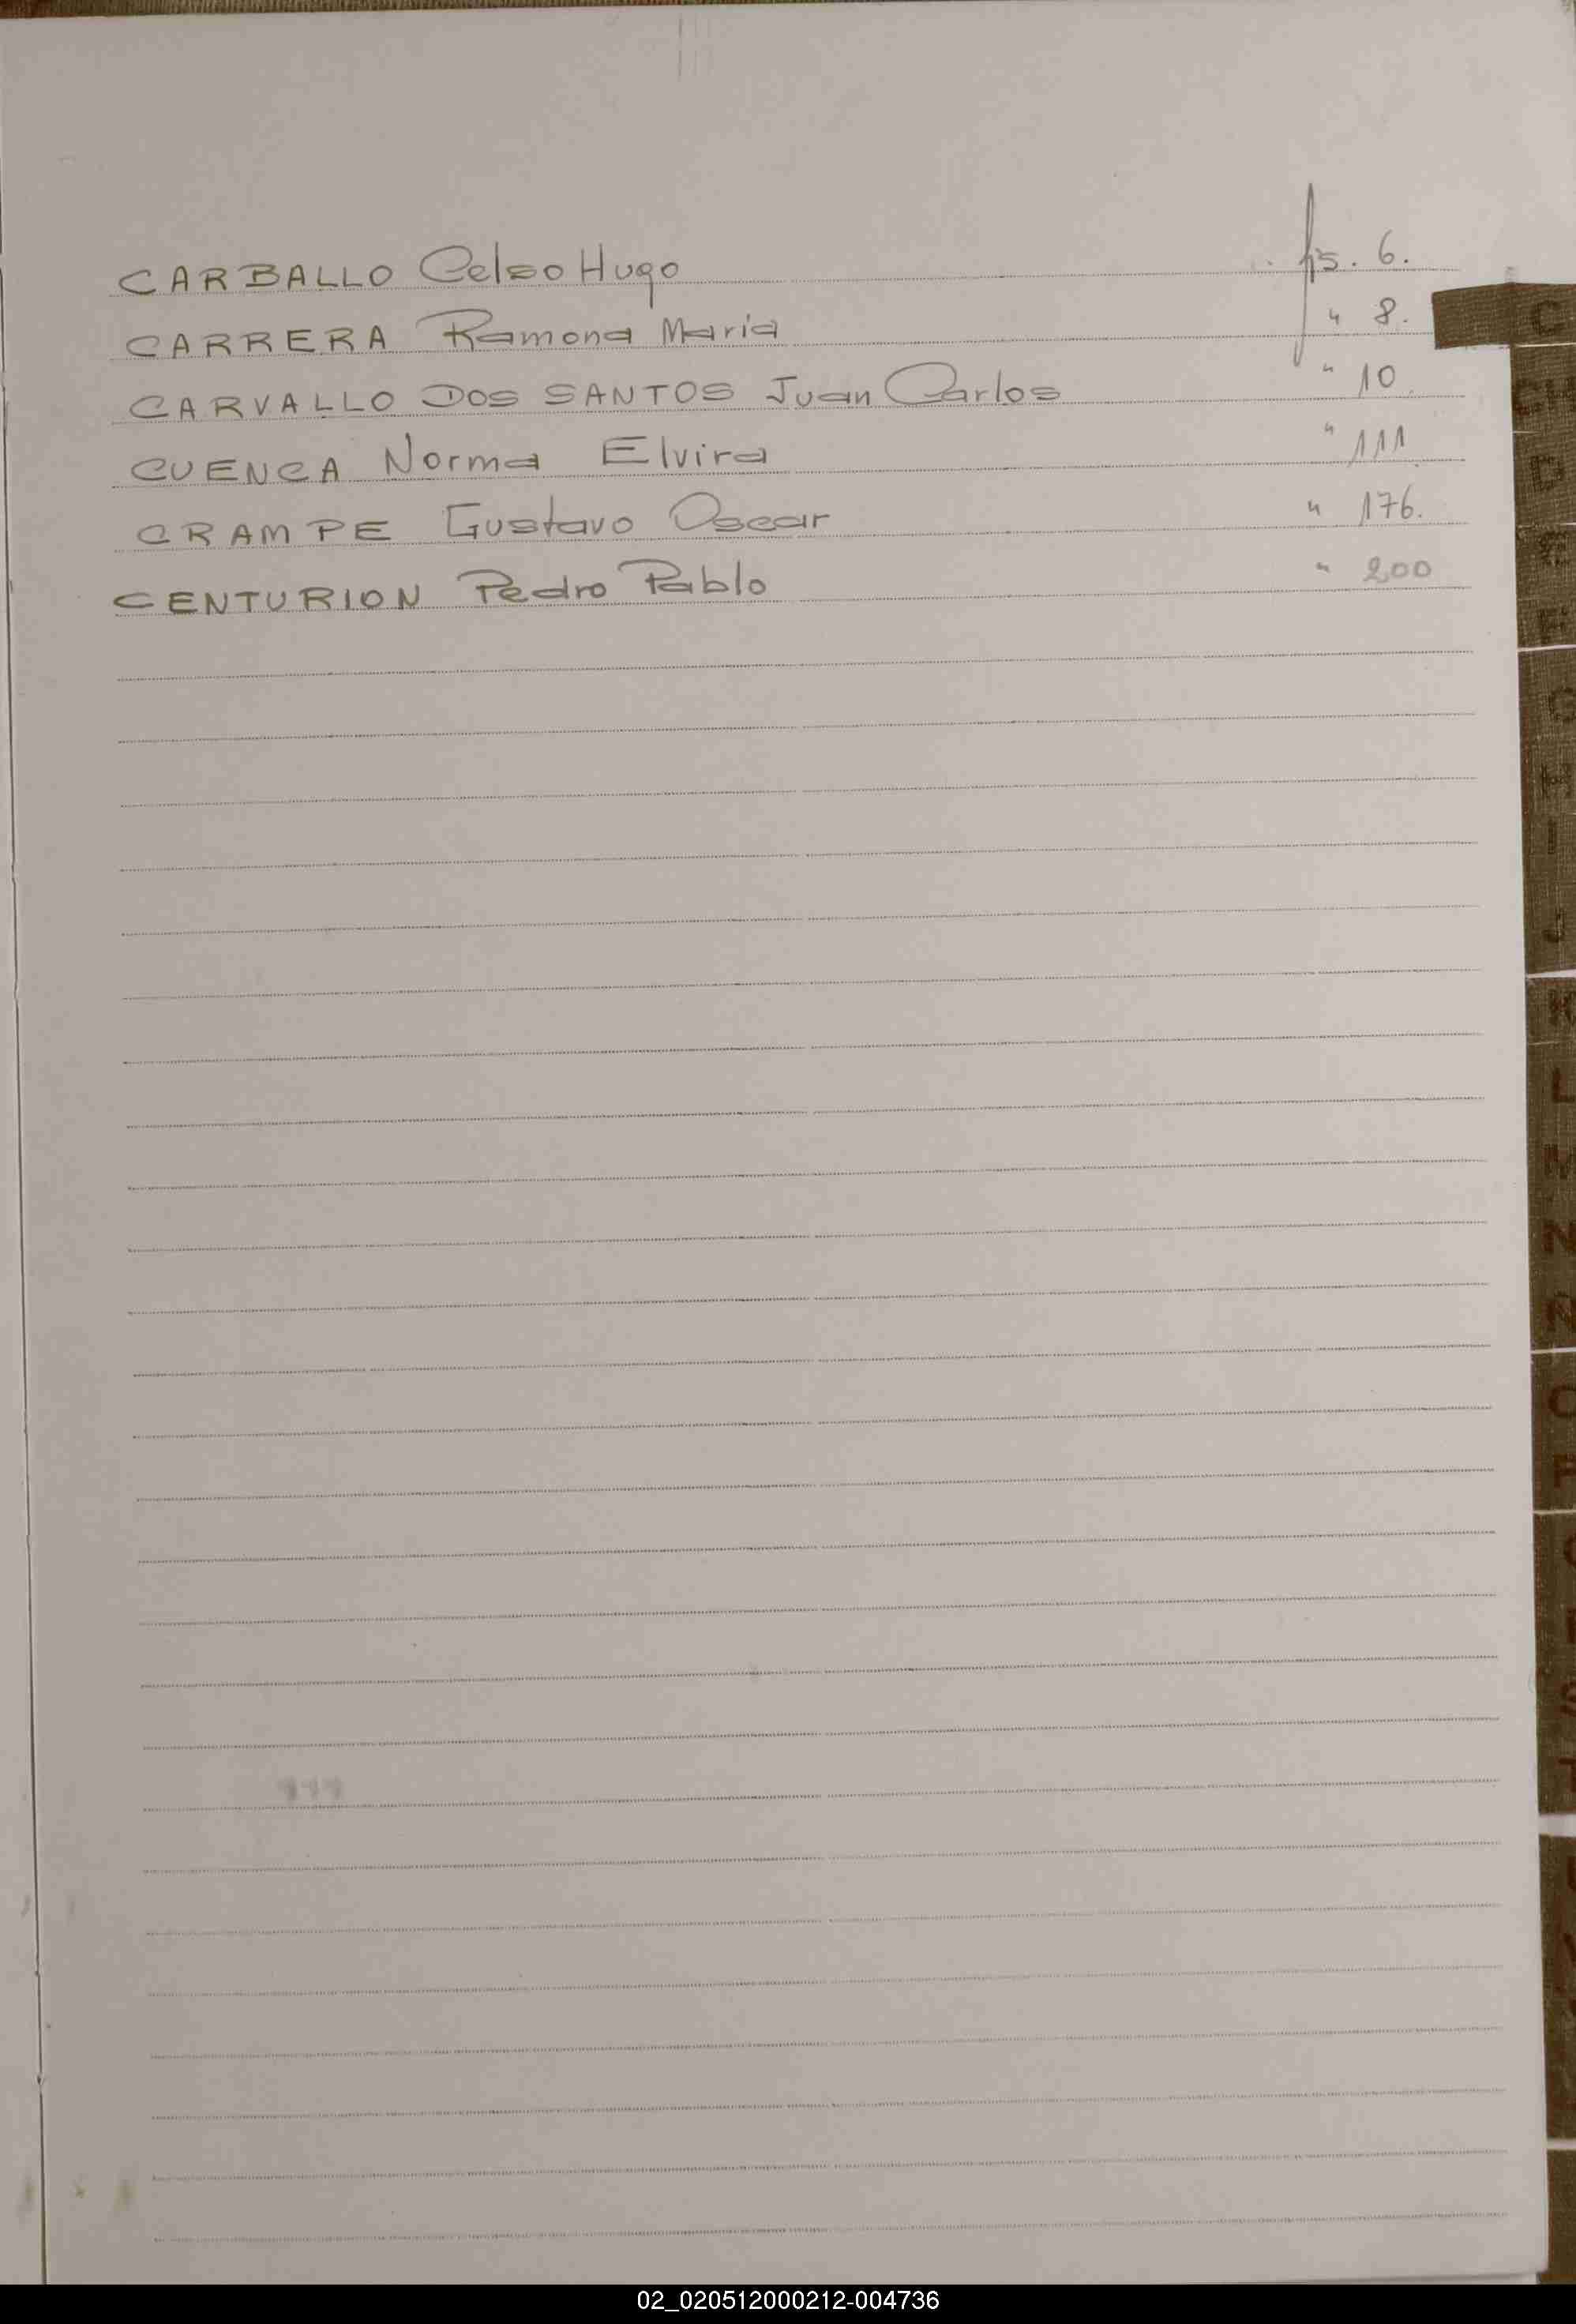 CARBALLO Celso Hugo fs. 6.
CARRERA Ramona Maria " 8.
CARVALLO DOS SANTOS Juan Carlos " 10
CUENCA Norma Elvira " 111
CRAMPE Gustavo Oscar " 176.
CENTURION Pedro Pablo " 200
C
CH
D
L
N
O
02_020512000212-004736